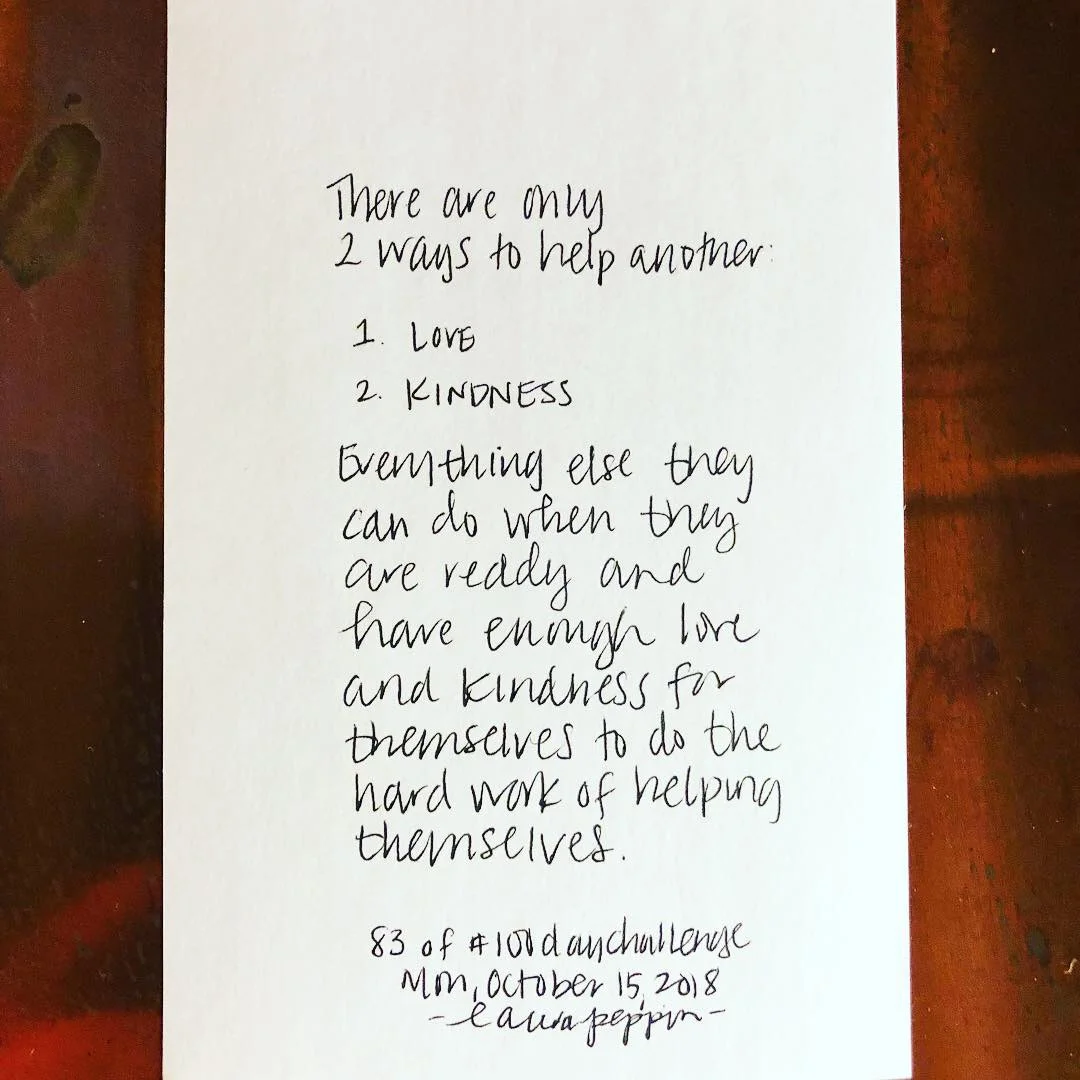 There are only
2 ways to help another:
1. LOVE
2. KINDNESS
Everything else they
can do when they
are ready and
have enough love
and kindness for
themselves to do the
hard work of helping
themselves.
83 of #100daychallenge
Mon, October 15, 2018
-laura peppin-